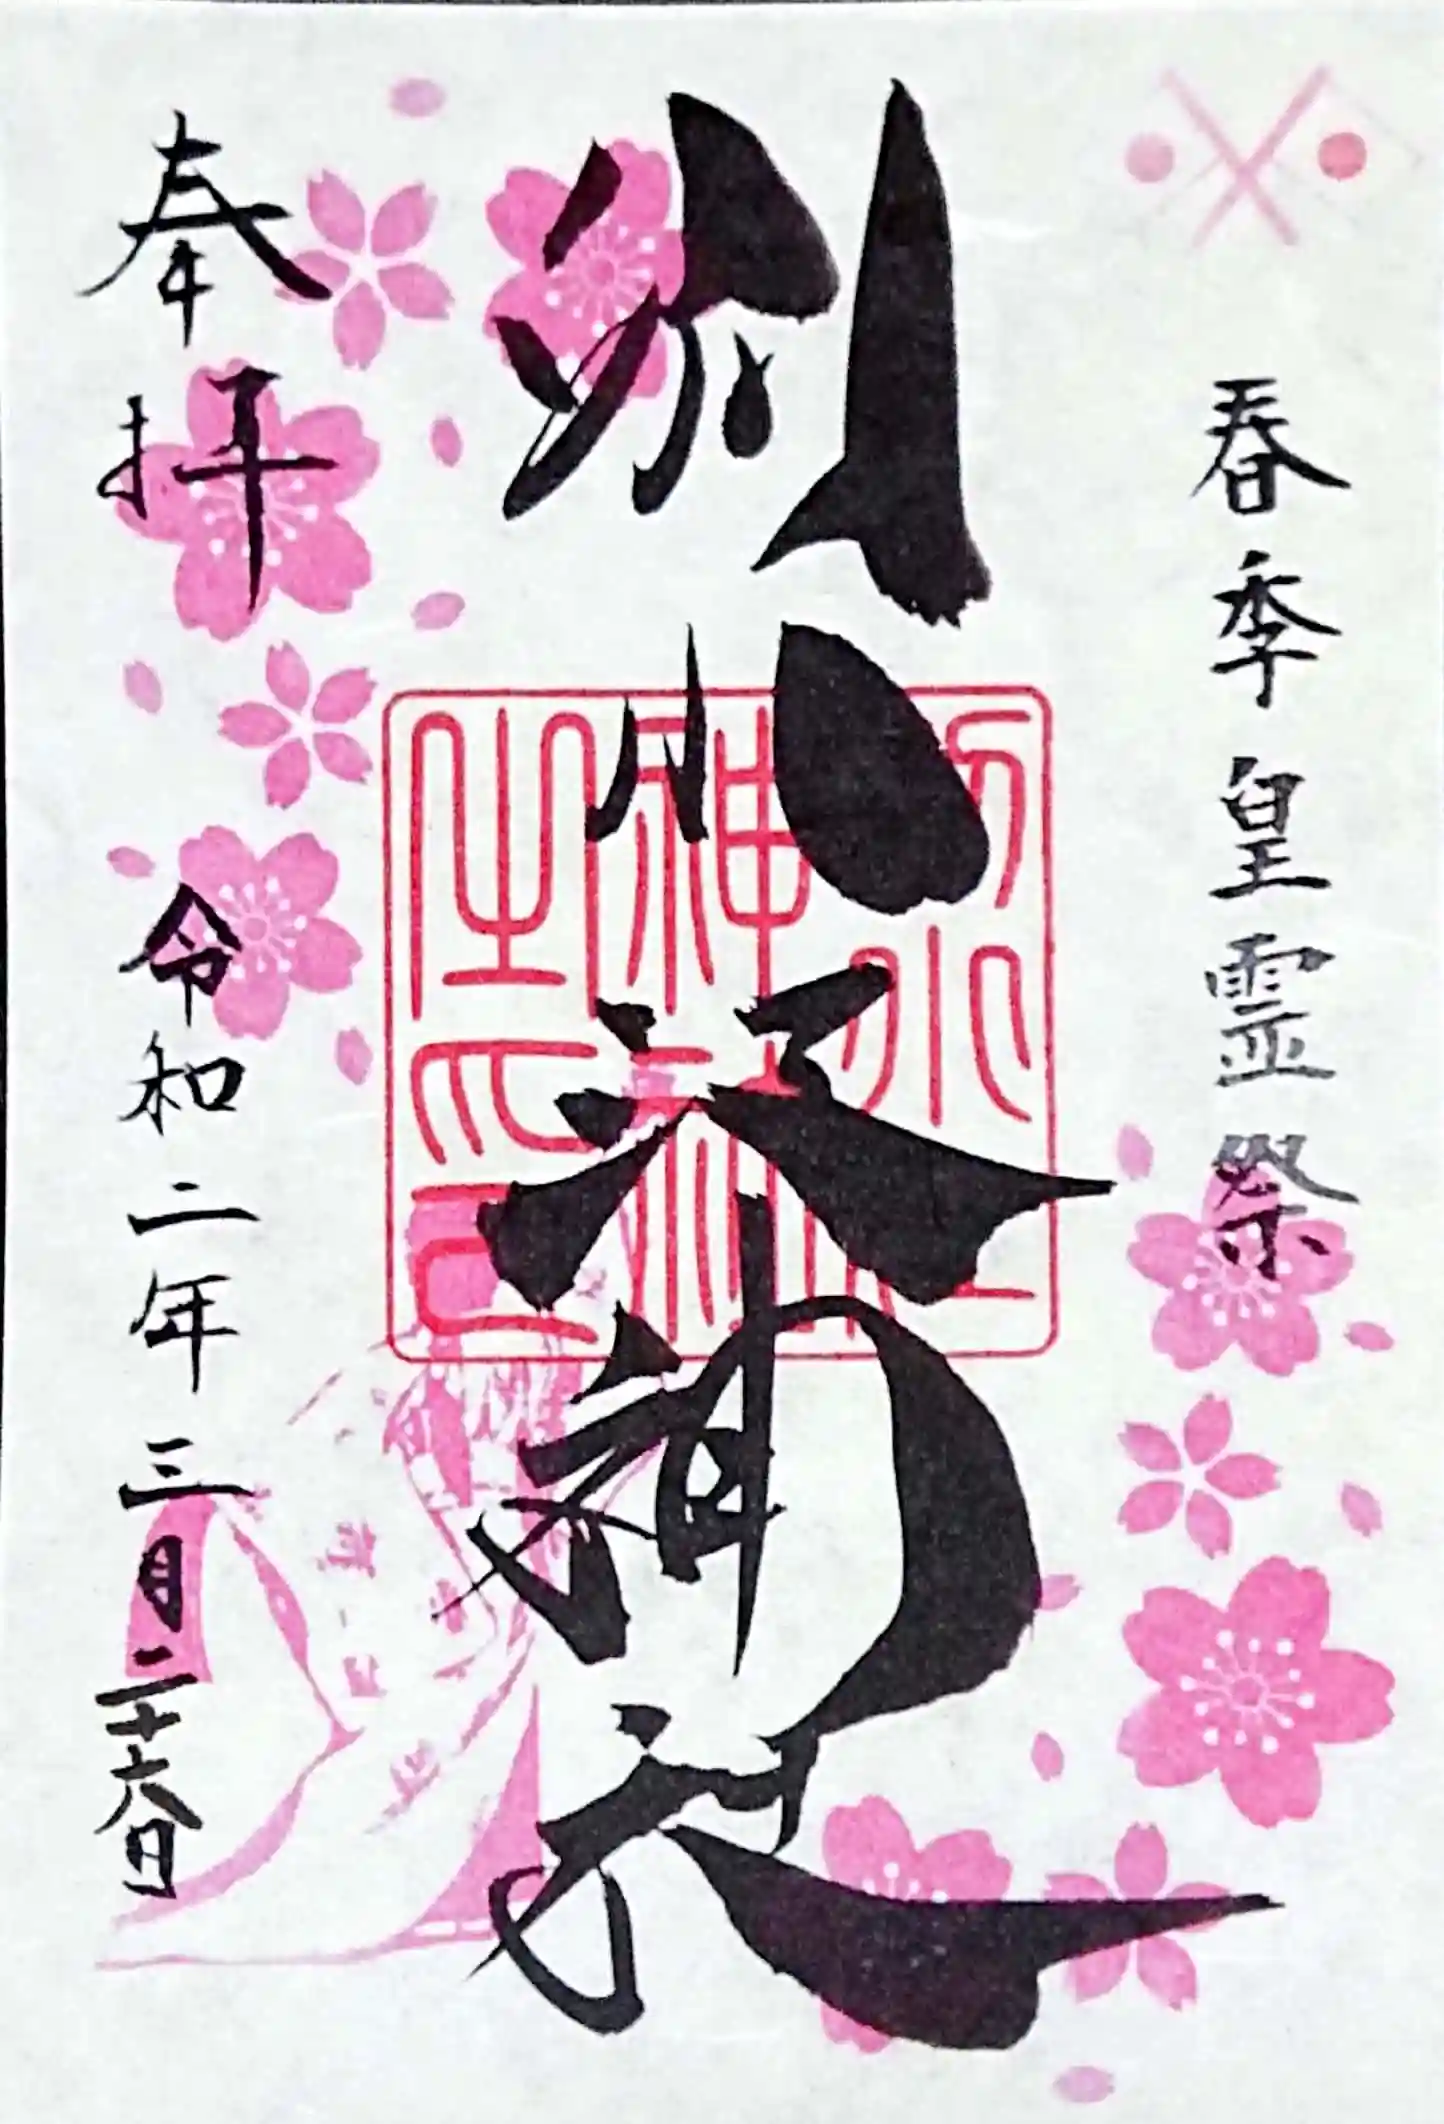 春季皇霊祭
別小江神社
別小江
神社
之印
奉拝
令和二年三月二十六日